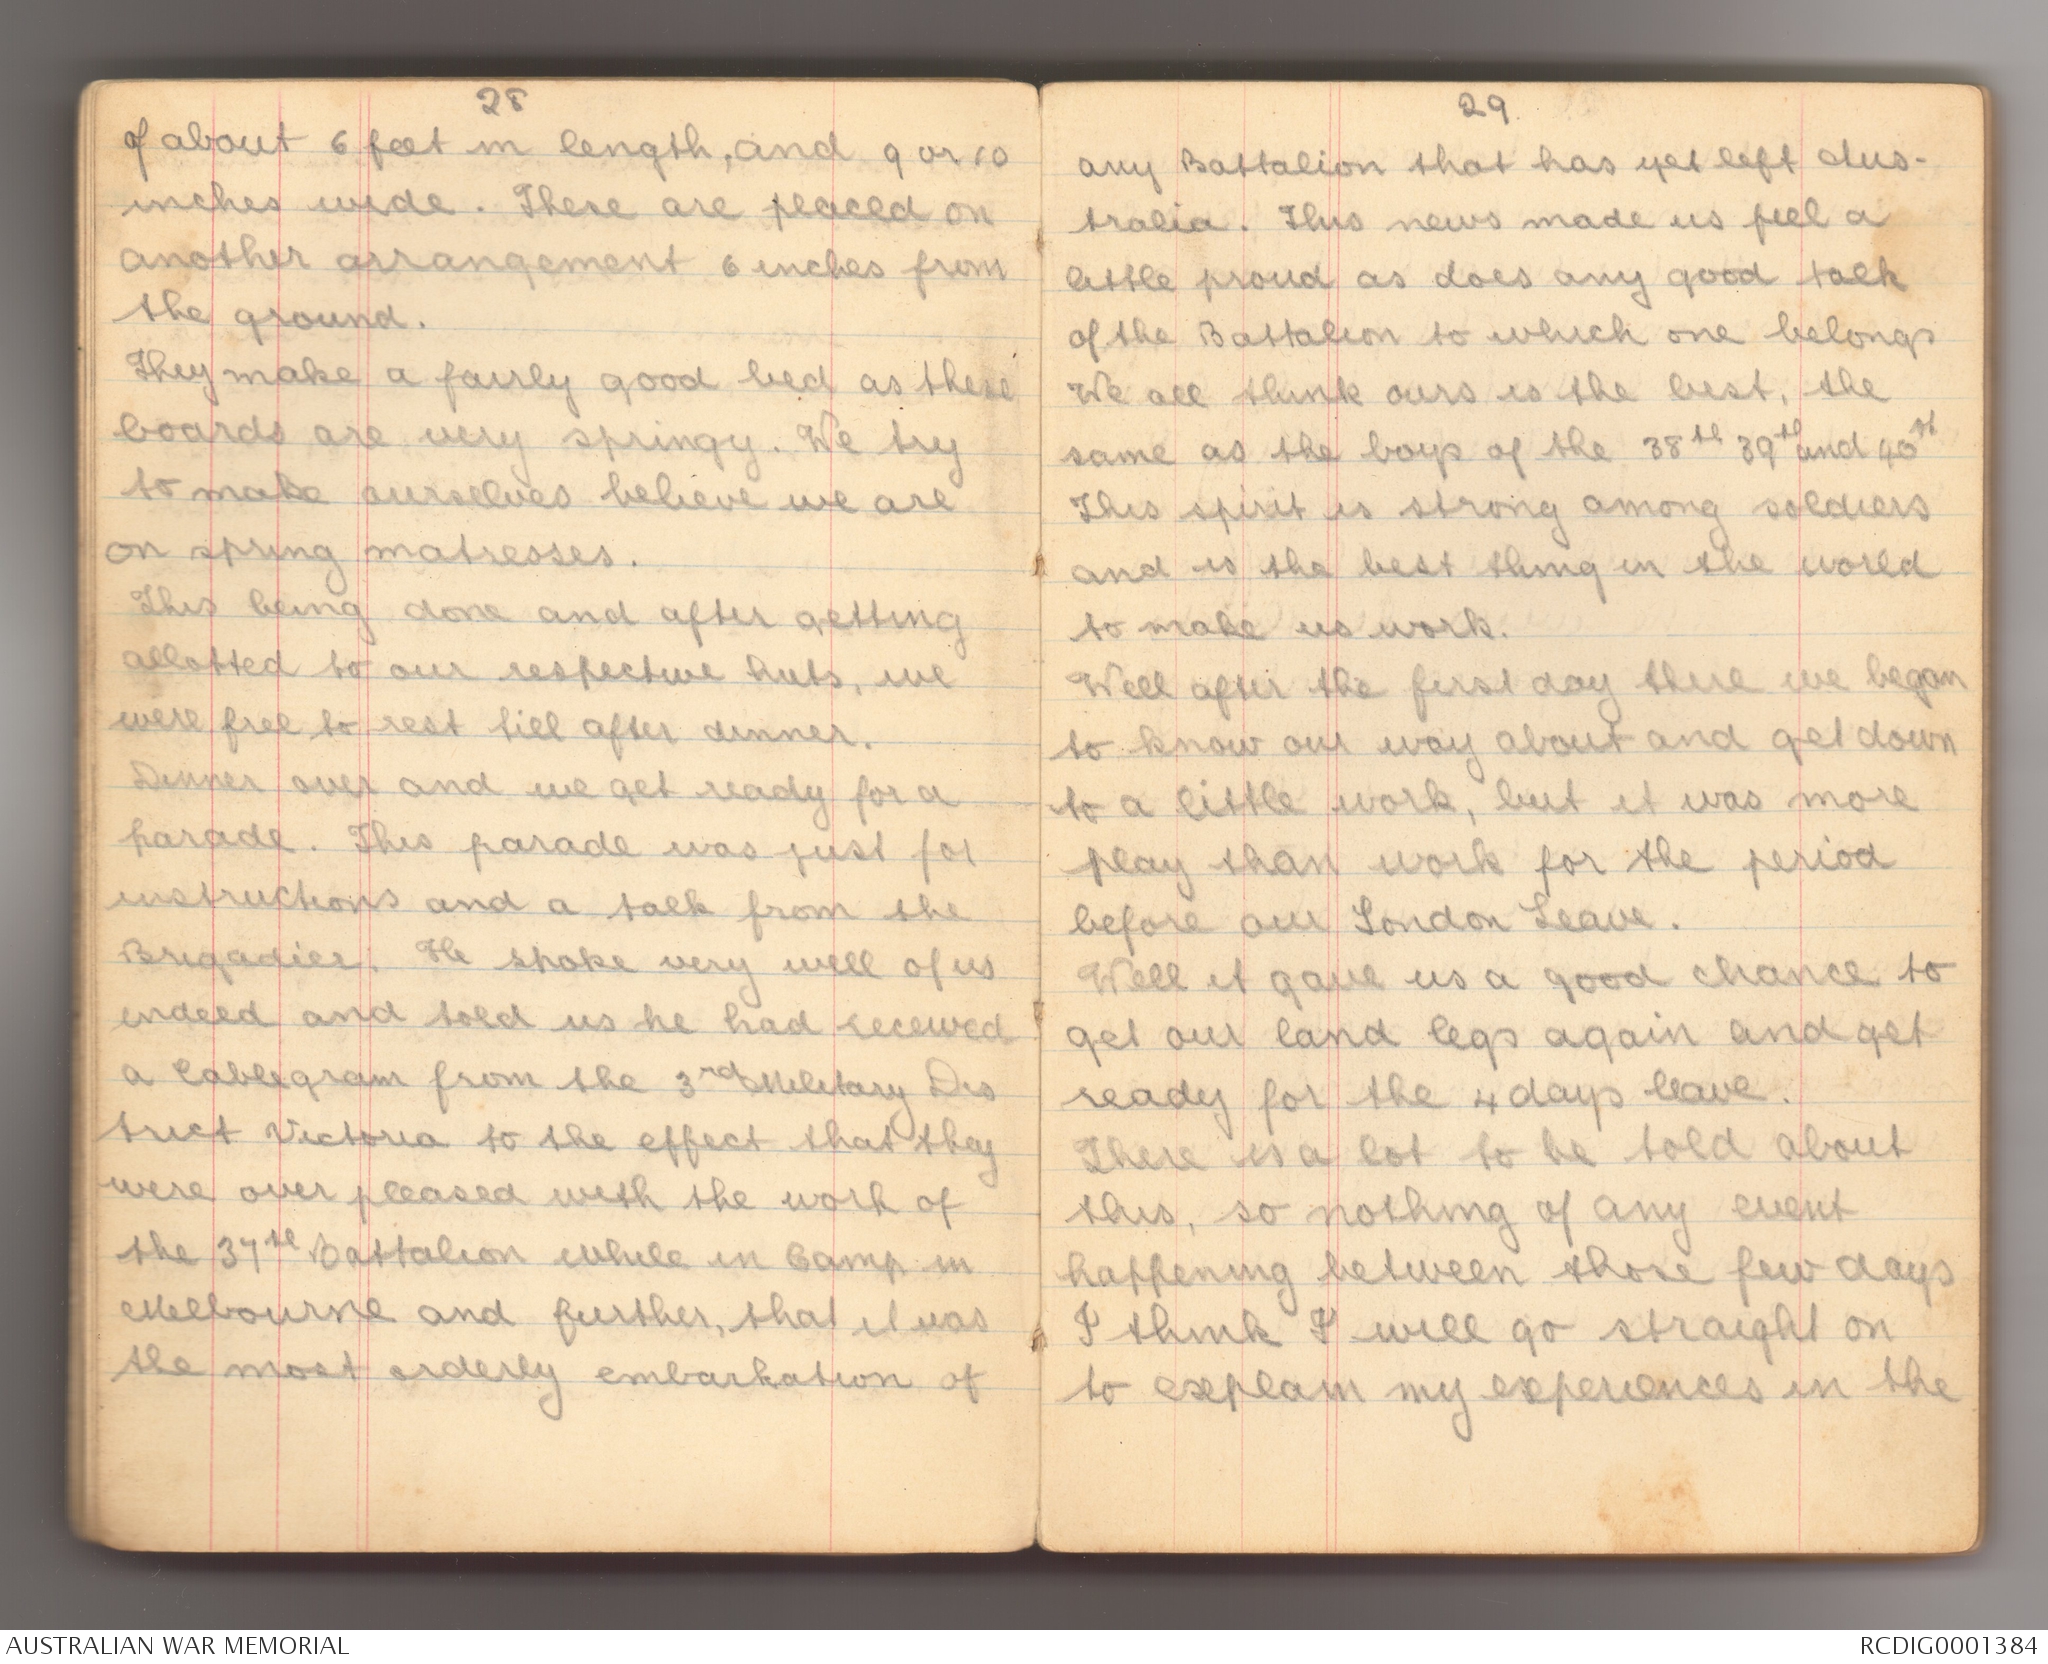 28
of about 6 feet in length, and 9 or 10
inches wide. These are placed on
another arrangement 6 inches from
the ground.
They make a fairly good bed as these
boards are very springy. We try
to make ourselves believe we are
on spring matresses.
This being done and after getting
allotted to our respective huts, we
were free to rest till after dinner.
Dinner over and we get ready for a
parade. This parade was just for
instructions and a talk from the
Brigadier. He spoke very well of us
indeed and told us he had received
a Cablegram from the 3rd Military Dis
trict Victoria to the effect that they
were over pleased with the work of
the 37th Battalion while in Camp in
Melbourne and further, that it was
the most orderly embarkation of
29
any Battalion that has yet left Aus-
tralia. This news made us feel a
little proud as does any good talk
of the Battalion to which one belongs
We all think ours is the best, the
same as the boys of the 38th 39th and 40th
This spirit is strong among soldiers
and is the best thing in the world
to make us work.
Well after the first day there we began
to know our way about and get down
to a little work, but it was more
play than work for the period
before our London Leave.
Well it gave us a good chance to
get our land legs again and get
ready for the 4 days leave.
There is a lot to be told about
this, so nothing of any event
happening between those few days
I think I will go straight on
to explain my experiences in the
AUSTRALIAN WAR MEMORIAL
RCDIG0001384